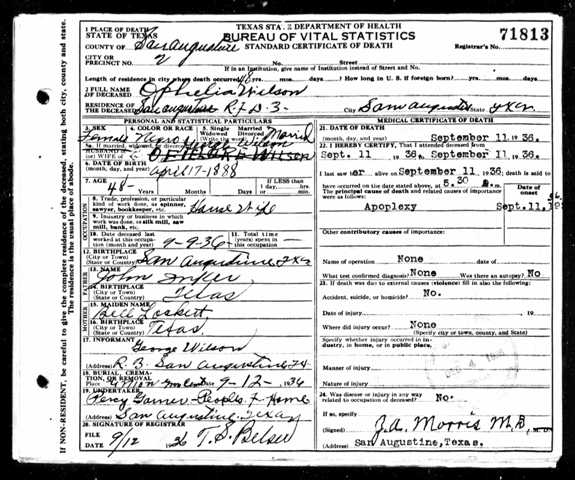 1 PLACE OF DEATH
STATE OF TEXAS
COUNTY OF San Augustine
CITY OR
PRECINCT NO. 2
TEXAS STATE DEPARTMENT OF HEALTH
BUREAU OF VITAL STATISTICS
STANDARD CERTIFICATE OF DEATH
71813
Registrar's No.
No. Street
If in an Institution, give name of Institution instead of Street and No.
Length of residence in city where death occurred 48 How long in U. S. if foreign born?
2 FULL NAME OF DECEASED Ophelia Wilson
RESIDENCE OF THE DECEASED San Augustine R.F.D 3- City San Augustine State
PERSONAL AND STATISTICAL PARTICULARS
3. SEX Female
4. COLOR OR RACE
5. Single Married
Widowed Divorced
(Write the word) Married
5a. If married, widowed, or divorced
HUSBAND of
(or) WIFE of George Wilson
6. DATE OF BIRTH
(month, day, year) April 17-1888
7. AGE 48-
IF LESS than 1 day
hrs. min.
8. Trade, profession, or particular kind of work done, as spinner, sawyer, bookkeeper, etc. House Wife
9. Industry or business in which work was done, as silk mill, saw mill, bank, etc.
10. Date deceased last worked at this occupation (month and year) 9-9-36
11. Total time (years) spent in this occupation
OCCUPATION
12. BIRTHPLACE (City or Town)
(State or Country) San Augustine
FATHER
13. NAME John
14. BIRTHPLACE (City or Town)
(State or Country) Texas
MOTHER
15. MAIDEN NAME Bell
16. BIRTHPLACE (City or Town)
(State or Country) Texas.
17 INFORMANT George Wilson
(Address) R. 3. San Augustine
18 BURIAL, CREMATION, OR REMOVAL
Place Date 9-12-1936
19 UNDERTAKER Percy Garner-Peoples F. Home
(Address) San Augustine Texas
20 SIGNATURE OF REGISTRAR
FILE DATE 9/12 1936 T. S.
MEDICAL CERTIFICATE OF DEATH
21. DATE OF DEATH
(month, day, year) September 11, 1936.
22. I HEREBY CERTIFY, That I attended deceased from
Sept. 11 1936, to September 11, 1936.
I last saw her alive on September 11, 1936; death is said to have occurred on the date stated above, at 8:30 m.
The principal cause of death and related causes of importance were as follows:
Date of onset
Apoplexy Sept. 11, 36
Other contributory causes of importance:
Name of operation None
What test confirmed diagnosis? None Was there an autopsy? No
23. If death was due to external causes (violence) fill in also the following:
Accident, suicide, or homicide? No.
Date of injury 19
Where did injury occur? None
(Specify city or town, county, and State)
Specify whether injury occurred in industry, in home, or in public place.
Manner of injury
Nature of injury
24. Was disease or injury in any way related to occupation of deceased? No.
If so, specify
(Signed) J.A. Morris M.D.
(Address) San Augustine, Texas.
IF NON-RESIDENT, be careful to give the complete residence of the deceased, stating both city, county and state.
The residence is the usual place of abode.